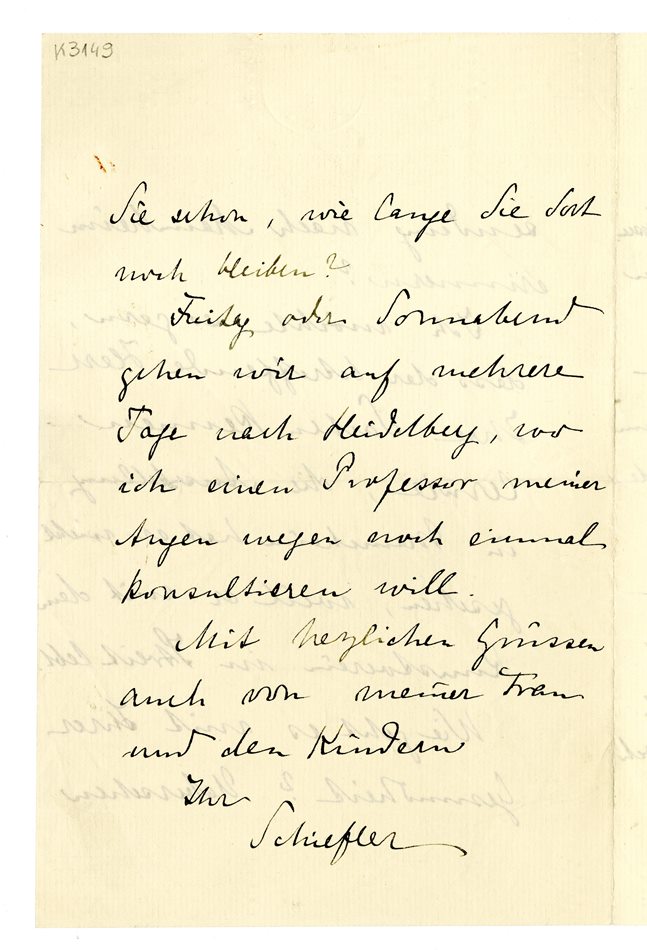 K3149
Sie schon, wie lange Sie dort
noch bleiben?
Freitag oder Sonnabend
gehen wir auf mehrere
Tage nach Heidelberg, wo
ich einen Professor meiner
Augen wegen noch einmal
konsultieren will.
Mit herzlichen Grüssen
auch von meiner Frau
und den Kindern
Ihr
Schiefler